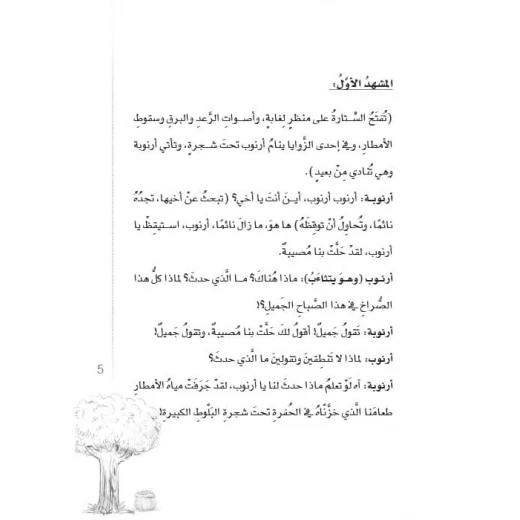 المشهدُ الأوَّلُ:
(تُفتَحُ السِّتارةُ على منظرٍ لغابةٍ، وأصواتِ الرَّعدِ والبرقِ وسقوطِ
الأمطارِ، وفي إحدى الزَّوايا ينامُ أرنوب تحتَ شجرةٍ، وتأتي أرنوبة
وهي تُنادي مِنْ بعيدٍ).
أرنوبة: أرنوب أرنوب، أينَ أنتَ يا أخي؟ (تبحثُ عنْ أخيها، تجدُهُ
نائمًا، وتُحاولُ أنْ توقظَهُ) ها هوَ، ما زالَ نائمًا، أرنوب، استيقِظْ يا
أرنوب، لقدْ حَلَّتْ بنا مُصيبةٌ.
أرنوب (وهوَ يتثاءَبُ): ماذا هُناكَ؟ ما الَّذي حدثَ؟ لماذا كلُّ هذا
الصُّراخِ في هذا الصَّباحِ الجَميلِ؟!
أرنوبة: تَقولُ جَميلٌ! أقولُ لكَ حَلَّتْ بنا مُصيبةٌ، وتقولُ جَميلٌ!
أرنوب: لماذا لا تَنطِقينَ وتقولينَ ما الَّذي حدثَ؟
أرنوبة: آه لَوْ تعلمُ ماذا حدثَ لنا يا أرنوب، لقدْ جَرَفَتْ مياهُ الأمطارِ
طعامَنا الَّذي خزَّنَّاهُ في الحُفرةِ تحتَ شجرةِ البَلّوطِ الكبيرةِ!
5